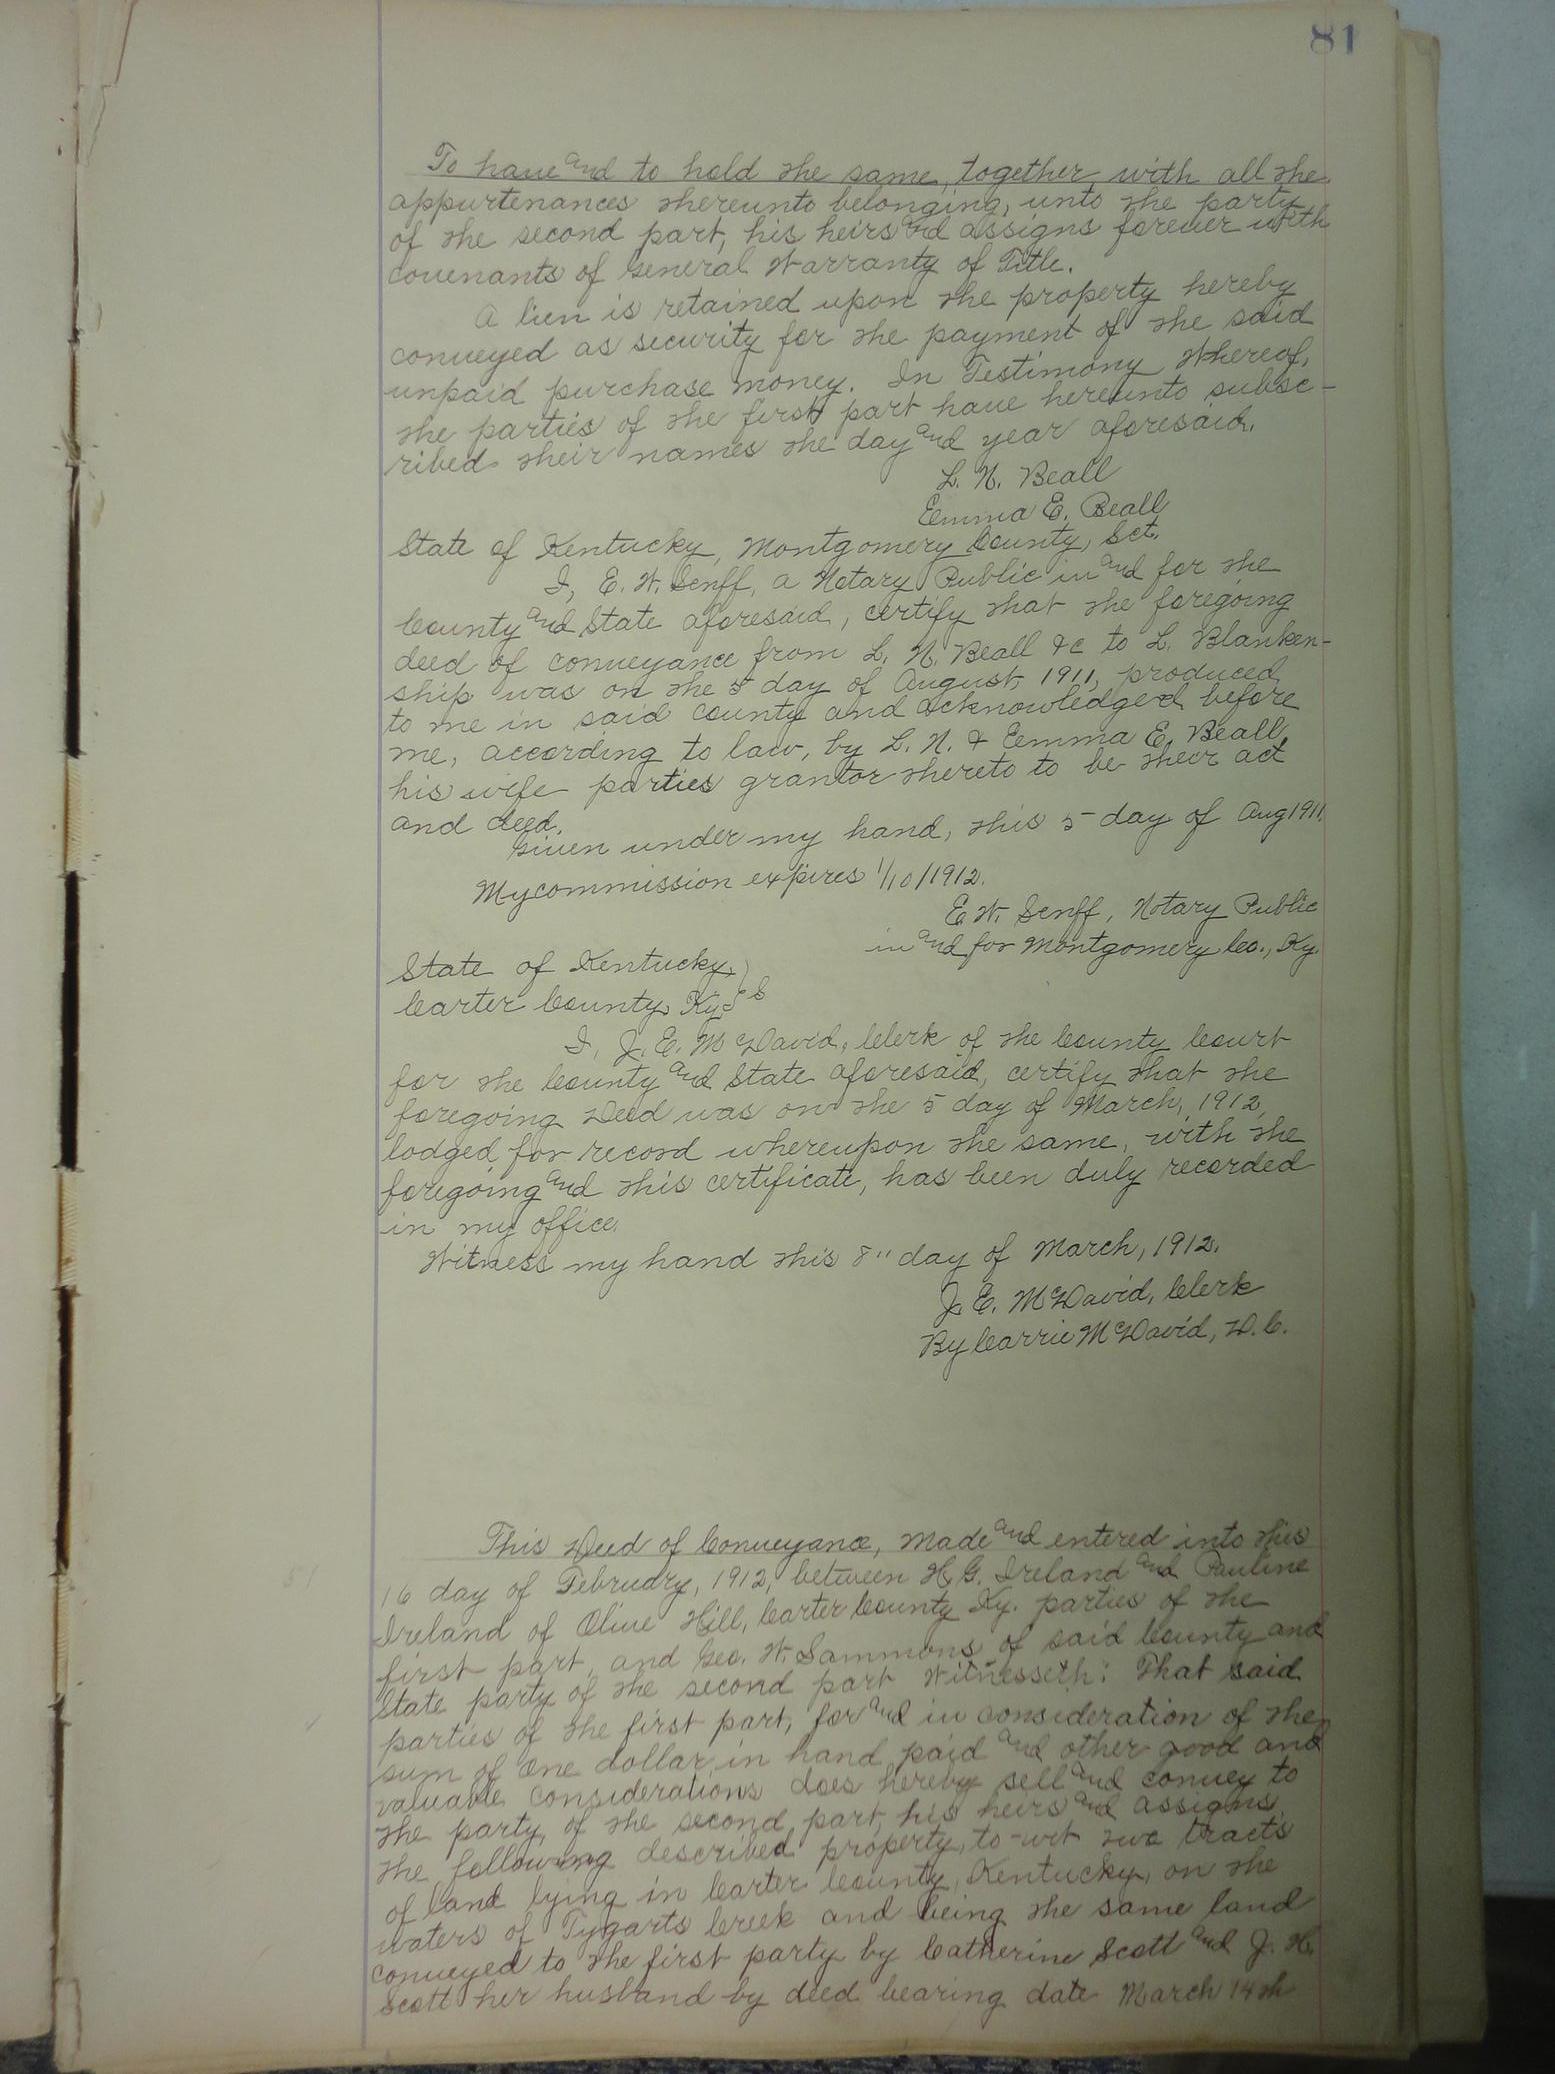 81
To have and to hold the same, together with all the
appurtenances thereunto belonging, unto the party
of the second part, his heirs and assigns forever with
covenants of General Warranty of Title.
A lien is retained upon the property hereby
conveyed as security for the payment of the said
unpaid purchase money. In Testimony Whereof,
the parties of the first part have hereunto subsc-
ribed their names the day and year aforesaid.
L. N. Beall
Emma E. Beall
State of Kentucky, Montgomery County, Sct.
I, E. W. Senff, a Notary Public in and for the
County and State aforesaid, certify that the foregoing
deed of conveyance from L. N. Beall &c to L. Blanken-
ship was on the 5 day of August, 1911, produced
to me in said county and acknowledged before
me, according to law, by L. N. & Emma E. Beall,
his wife parties grantor thereto to be their act
and deed.
Given under my hand, this 5 day of Aug 1911.
My commission expires 1/10/1912.
E. W. Senff, Notary Public
in and for Montgomery Co., Ky.
State of Kentucky, )
Carter County, Ky. } S S
I, J. E. McDavid, Clerk of the County Court
for the County and State aforesaid, certify that the
foregoing Deed was on the 5 day of March, 1912,
lodged for record whereupon the same, with the
foregoing and this certificate, has been duly recorded
in my office.
Witness my hand this 8" day of March, 1912.
J. E. McDavid, Clerk
By Carrie McDavid, D.C.
This Deed of Conveyance, Made and entered into this
16 day of February, 1912, between H. G. Ireland and Pauline
Ireland of Olive Hill, Carter County Ky. parties of the
first part, and Geo. W. Sammons of said County and
State party of the second part Witnesseth: That said
parties of the first part, for and in consideration of the
sum of One dollar, in hand paid and other good and
valuable considerations does hereby sell and convey to
the party of the second part, his heirs and assigns
the following described property, to-wit two tracts
of land lying in Carter County, Kentucky, on the
waters of Tygarts Creek and being the same land
conveyed to the first party by Catherine Scott and J. H.
Scott her husband by deed bearing date March 14th